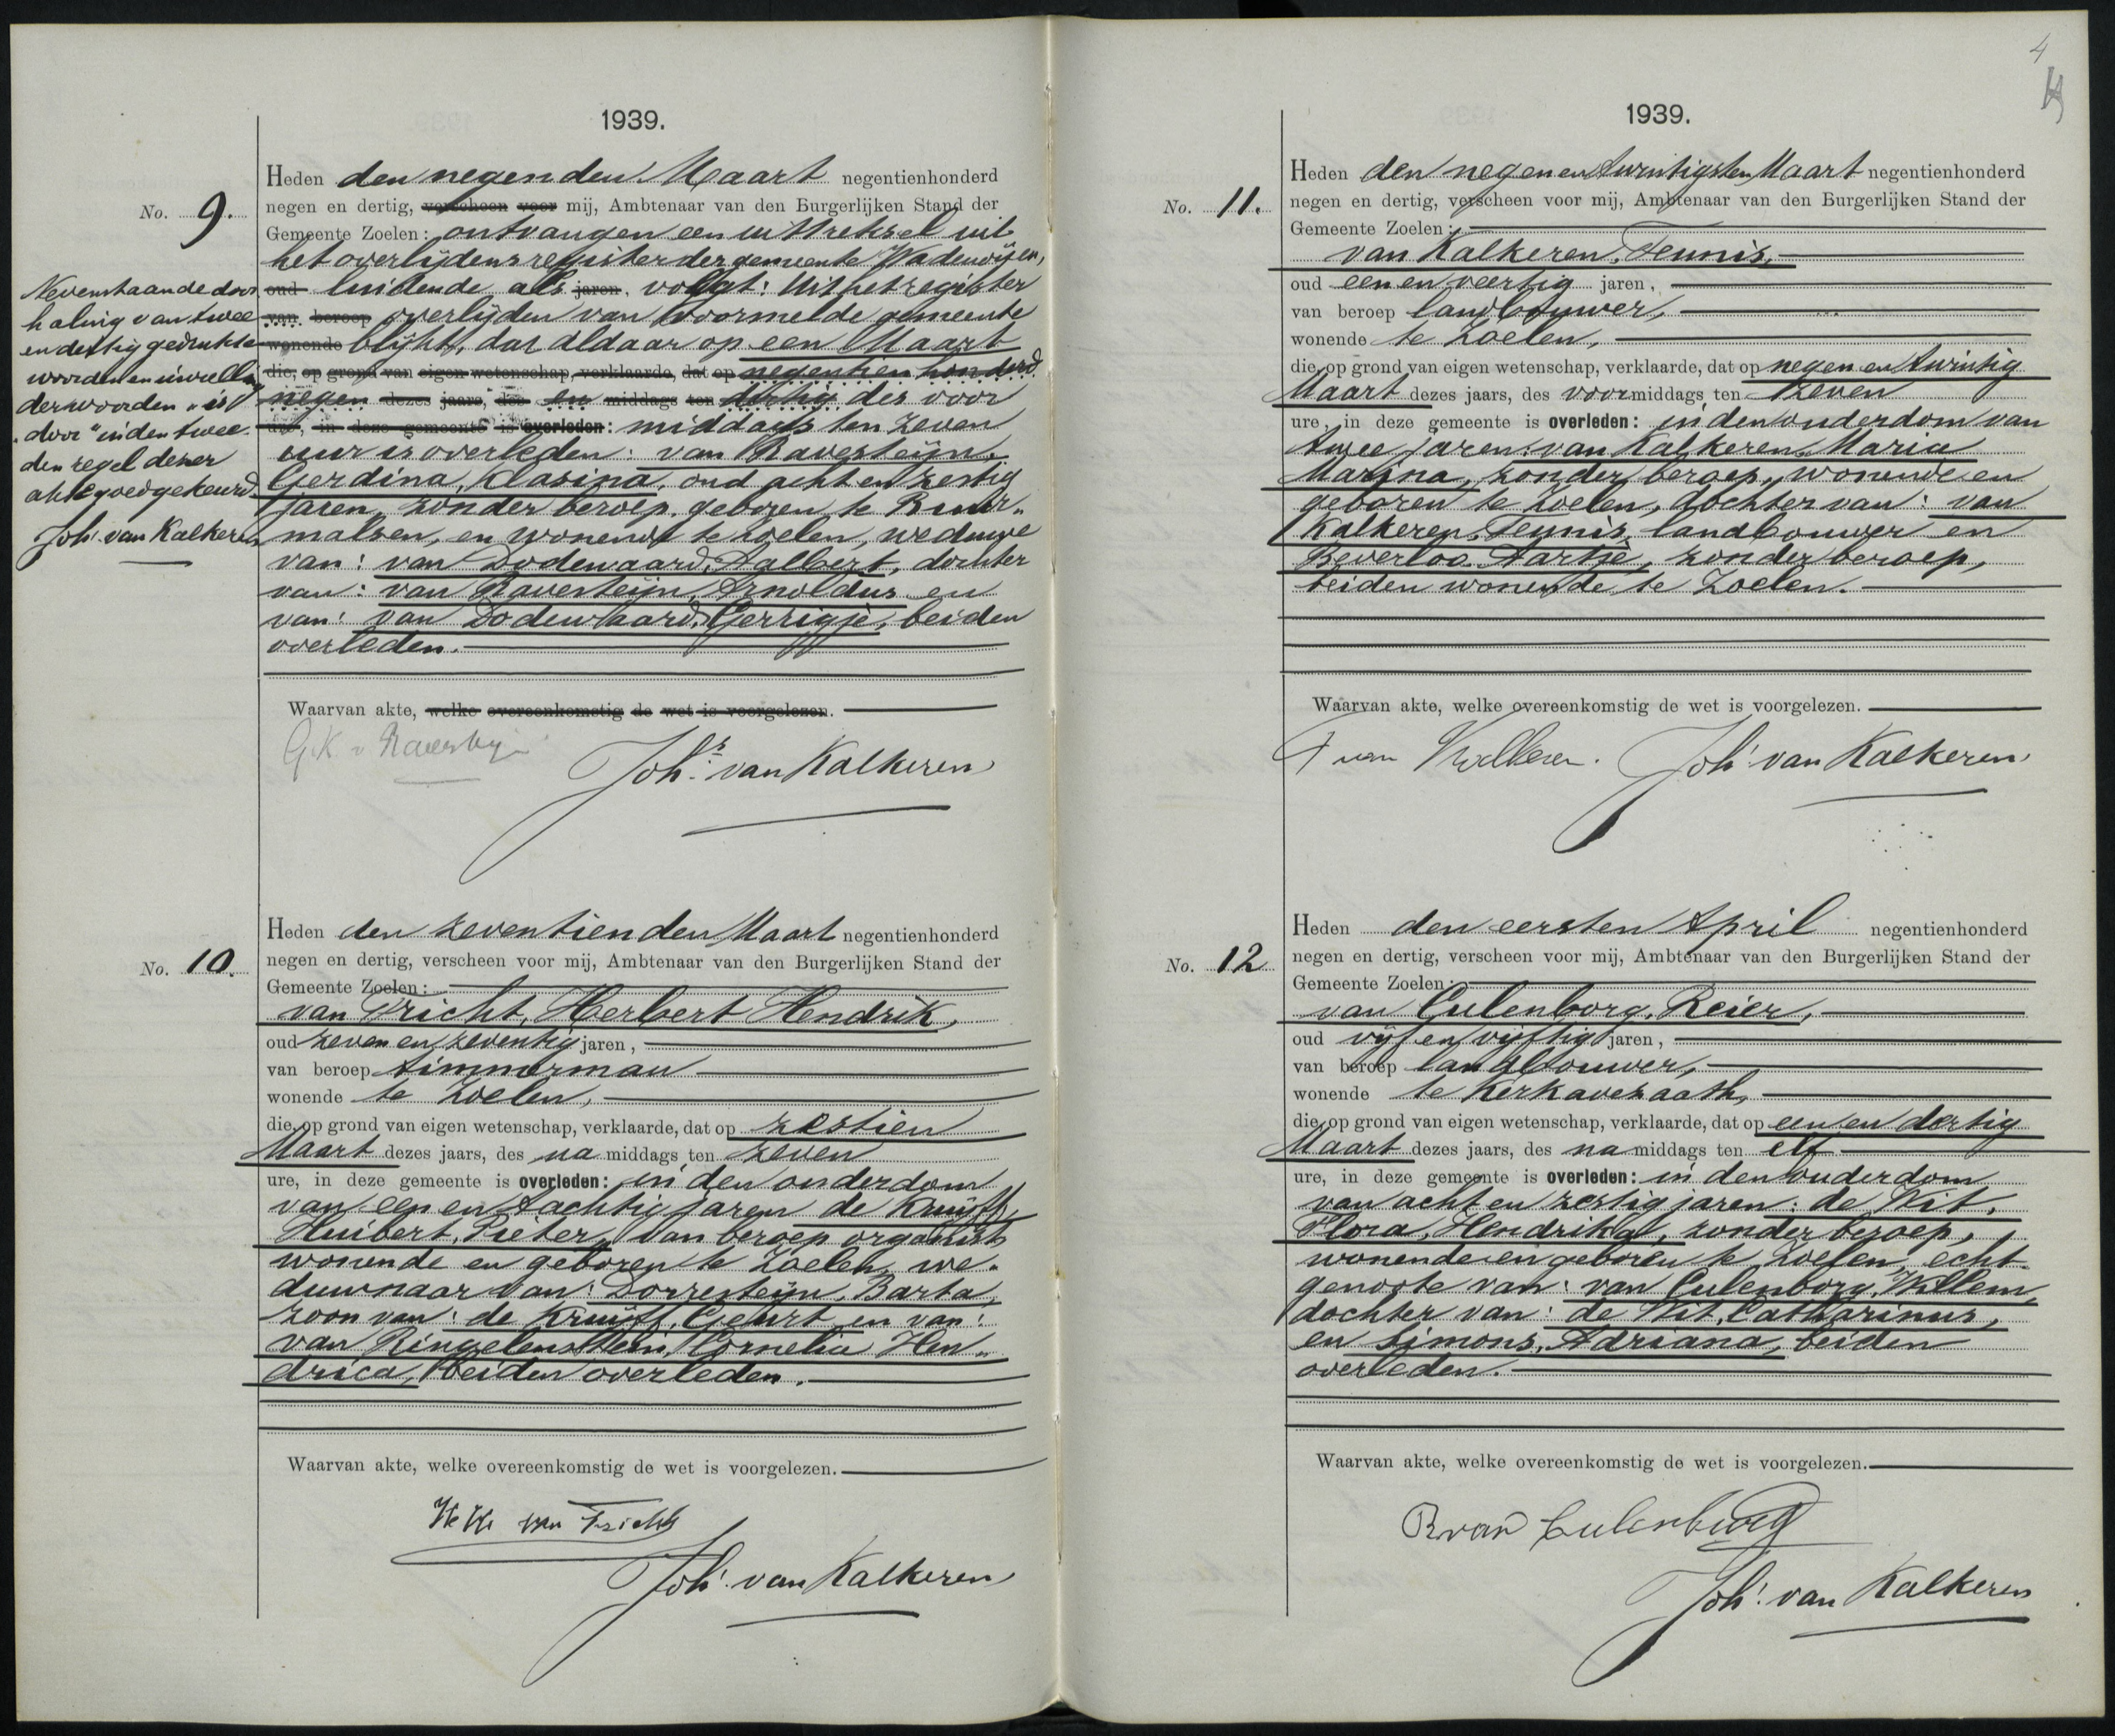 1939.
No. 9.
Heden den negenden Maart negentienhonderd
negen en dertig, verscheen voor mij, Ambtenaar van den Burgerlijken Stand der
Gemeente Zoelen: ontvangen een uittreksel uit
het overlijdensregister der gemeente Wadenoijen,
oud luidende als jaren, volgt: Uit het register
van beroep overlijden van voormelde gemeente
wonende blijkt, dat aldaar op een Maart
die, op grond van eigen wetenschap, verklaarde, dat op negentien honderd
negen dezes jaars, des en middags ten dertig des voor
ure, in deze gemeente is overleden: middags ten zeven
uur is overleden: van Ravesteijn,
Gerdina, Klasina, oud acht en zestig
jaren, zonder beroep, geboren te Buur-
malsen, en wonende te Zoelen, weduwe
van: van Dodewaard, Aalbert, dochter
van: van Ravesteijn, Arnoldus en
van: van Dodewaard, Gerrigje, beiden
overleden.
Nevenstaande door
haling van twee
en dertig gedrukte
woorden
der woorden „is
door" in den twee
den regel dezer
akte goedgekeurd.
Joh. van Kalkeren
Waarvan akte, welke overeenkomstig de wet is voorgelezen.
G.K. v Ravesteyn
Johs. van Kalkeren
No. 10.
Heden den zeventienden Maart negentienhonderd
negen en dertig, verscheen voor mij, Ambtenaar van den Burgerlijken Stand der
Gemeente Zoelen:
van Tricht, Herbert Hendrik,
oud zeven en zeventig jaren,
van beroep timmerman
wonende te Zoelen,
die op grond van eigen wetenschap, verklaarde, dat op zestien
Maart dezes jaars, des na middags ten zeven
ure, in deze gemeente is overleden: in den ouderdom
van een en tachtig jaren de Kruijff,
Huibert, Pieter, van beroep organist
wonende en geboren te Zoelen, we-
duwnaar van: Dorresteijn, Barta,
zoon van: de Kruijff, Geurt en van:
van Ringelenstein, Cornelia Hen-
drica, beiden overleden.
Waarvan akte, welke overeenkomstig de wet is voorgelezen.
HH van Tricht
Joh. van Kalkeren
4
1939.
No. 11.
Heden den negen en twintigsten Maart negentienhonderd
negen en dertig, verscheen voor mij, Ambtenaar van den Burgerlijken Stand der
Gemeente Zoelen:
van Kalkeren, Teunis,
oud een en veertig jaren,
van beroep landbouwer,
wonende te Zoelen,
die op grond van eigen wetenschap, verklaarde, dat op negen en twintig
Maart dezes jaars, des voormiddags ten zeven
ure, in deze gemeente is overleden: in den ouderdom van
twee jaren: van Kalkeren, Maria
Marina, zonder beroep, wonende en
geboren te Zoelen, dochter van: van
Kalkeren, Teunis, landbouwer en
Beverloo, Aartje, zonder beroep,
beiden wonende te Zoelen.
Waarvan akte, welke overeenkomstig de wet is voorgelezen.
T van Kalkeren. Joh. van Kalkeren
No. 12
Heden den eersten April negentienhonderd
negen en dertig, verscheen voor mij, Ambtenaar van den Burgerlijken Stand der
Gemeente Zoelen:
van Culenborg, Reier,
oud vijf en vijftig jaren,
van beroep landbouwer,
wonende te Kerkavezaath,
die op grond van eigen wetenschap, verklaarde, dat op een en dertig
Maart dezes jaars, des na middags ten elf
ure, in deze gemeente is overleden: in den ouderdom
van acht en zestig jaren: de Wit,
Flora, Hendrika, zonder beroep,
wonende en geboren te Zoelen, echt-
genoote van: van Culenborg, Willem,
dochter van: de Wit, Catharinus,
en Simons, Adriana, beiden
overleden.
Waarvan akte, welke overeenkomstig de wet is voorgelezen.
R van Culenburg
Joh. van Kalkeren